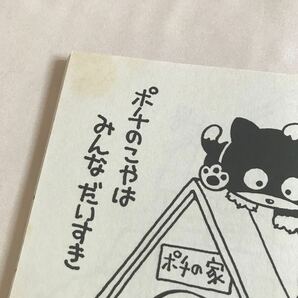 ポチのこやは
みんなだいすき
ポチの家